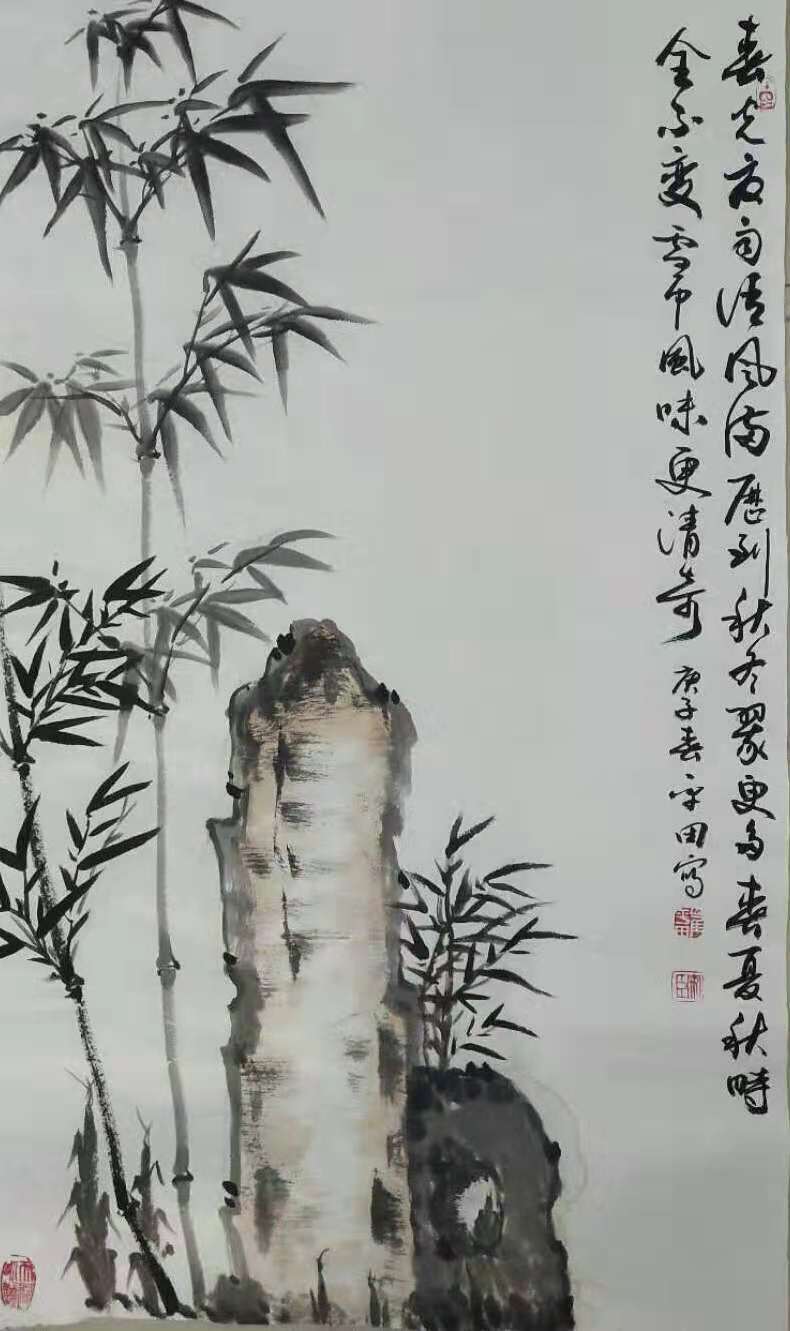 春光夜雨清风满历到秋冬翠更多春夏秋时
全不变雪中风味更清奇
庚子春 平田写